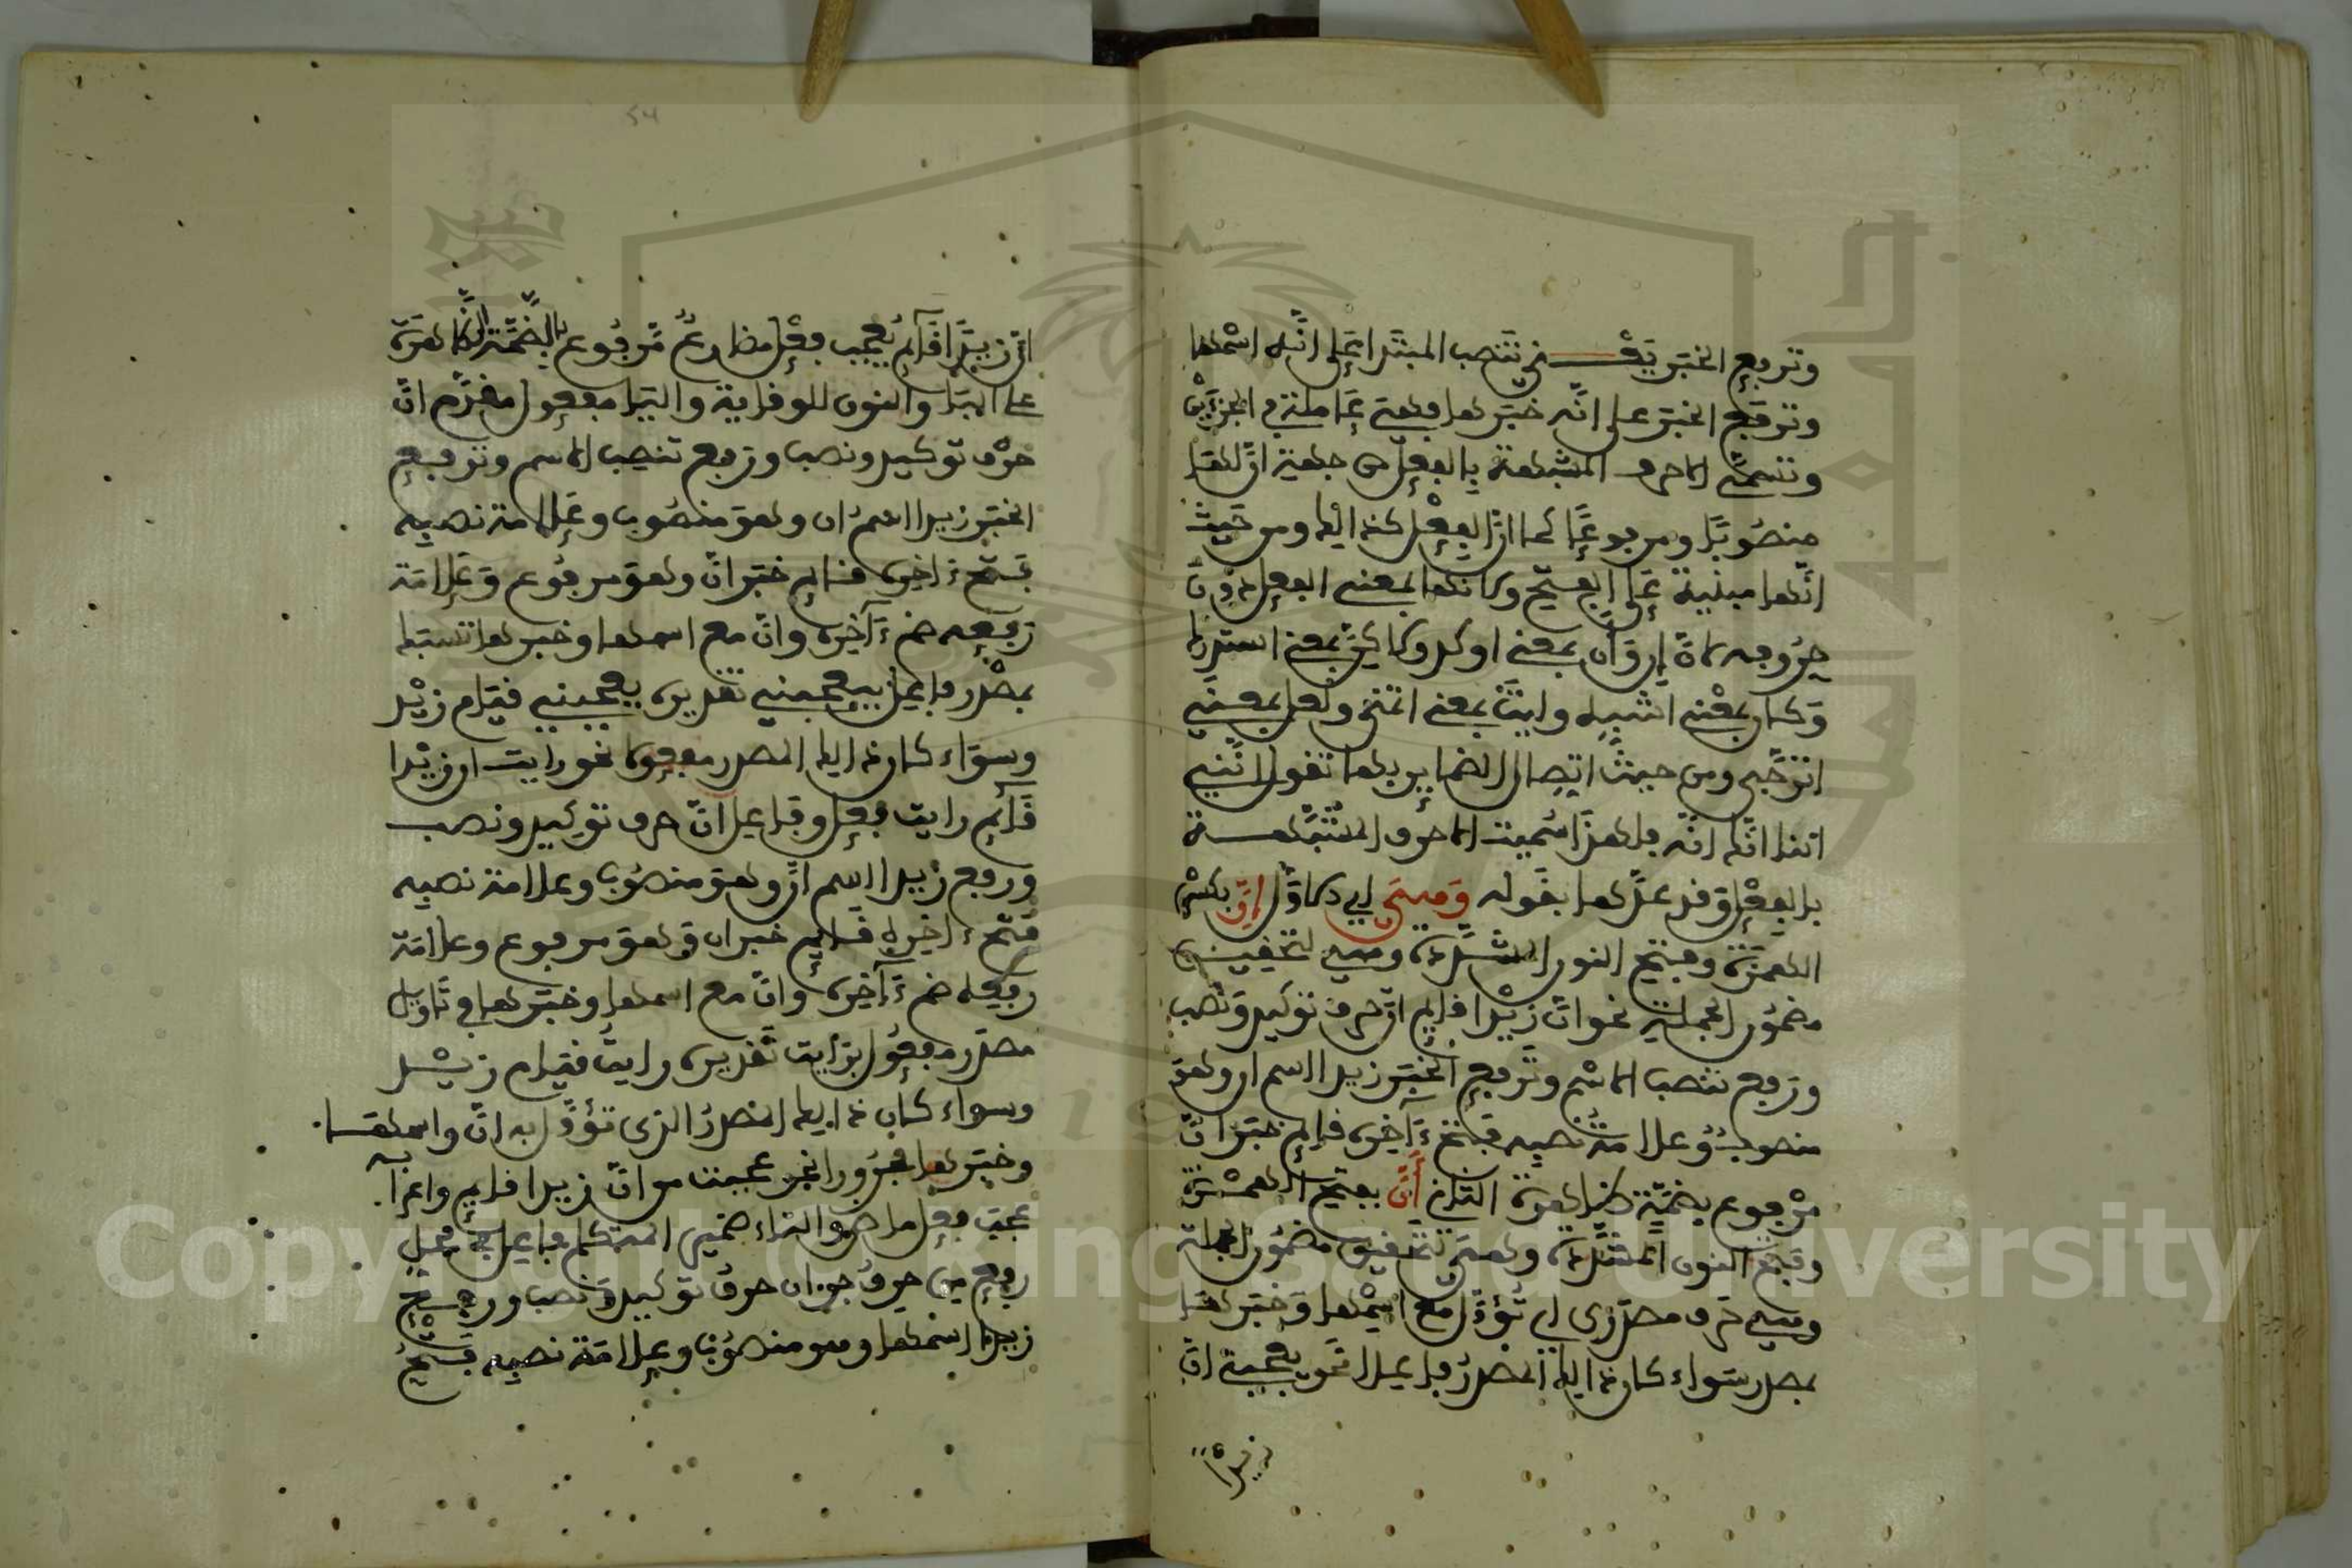 وترفع الخبر يعني تنصب المبتدا على انه اسمها
وترفع الخبر على انه خبرها فهي عاملة في الجزءين
وتسمى الاحرف المشبهة بالفعل من جهة ان لها
منصوبا ومرفوعا كما ان الفعل كذالك ومن حيث
انها مبنية على الفتح وكانها بمعنى الفعل دون
حروفه لان ان وأن بمعنى اوكد ولاكن بمعنى استدرك
وكان بمعنى اشبه وليت بمعنى اتمنى ولعل بمعنى
اترجى ومن حيث اتصال الضماير بها تقول انني
اننا انك انه فلهذا سميت الاحرف المشبهة
بالفعل وقد عدها بقوله وهي اي الاول ان بكسر
الهمزة وفتح النون المشددة وهي لتحقيق
مضمون الجملة نحو ان زيدا قايم ان حرف توكيد ونصب
ورفع تنصب الاسم وترفع الخبر زيدا اسم ان وهو
منصوب وعلامة نصبه فتح ءاخره قايم خبر ان
مرفوع بضمة ظاهرة الثاني أن بفتح الهمزة
وفتح النون المشددة وهي لتحقيق مضمون الجملة
وهي حرف مصدري اي تؤول مع اسمها وخبرها
بمصدر سواء كان ذالك المصدر فاعلا نحو يعجبني ان
زيدا
54
ان زيدا قايم يعجب فعل مضارع مرفوع بالضمة الظاهرة
على الباء والنون للوقاية والياء مفعول مقدم ان
حرف توكيد ونصب ورفع تنصب الاسم وترفع
الخبر زيدا اسم ان وهو منصوب وعلامة نصبه
فتح ءاخره قايم خبر ان وهو مرفوع وعلامة
رفعه ضم ءاخره وان مع اسمها وخبرها تنسبك
بمصدر فاعل بيعجبني تقديره يعجبني قيام زيد
وسواء كان ذالك المصدر مفعولا نحو رايت ان زيدا
قايم رايت فعل وفاعل ان حرف توكيد ونصب
ورفع زيدا اسم ان وهو منصوب وعلامة نصبه
فتح ءاخره قايم خبر ان وهو مرفوع وعلامة
رفعه ضم ءاخره وان مع اسمها وخبرها في تاويل
مصدر مفعول برايت تقديره رايت قيام زيد
وسواء كان ذالك المصدر الذي تؤول به ان واسمها
وخبرها مجرورا نحو عجبت من ان زيدا قايم واعرابه
عجب فعل ماض والتاء ضمير المتكلم فاعل في محل
رفع من حرف جر ان حرف توكيد ونصب ورفع
زيدا اسمها وهو منصوب وعلامة نصبه فتح
Copyright © King Saud University